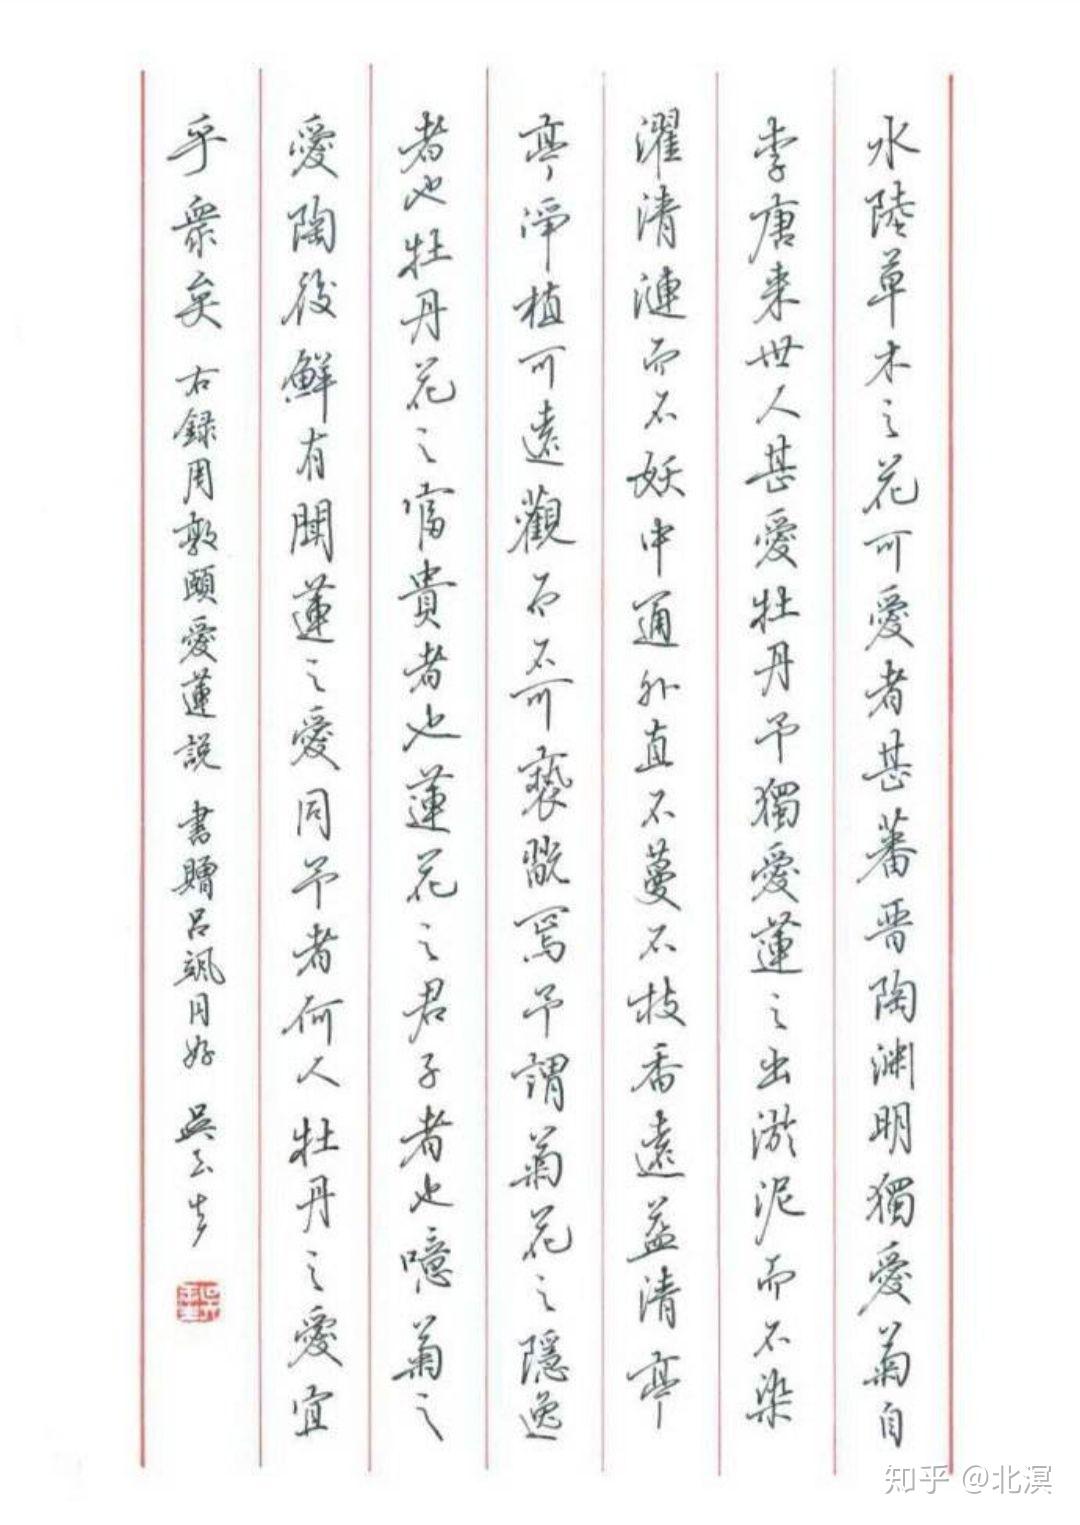 水陸草木之花可愛者甚蕃晋陶渊明獨愛菊自
李唐来世人甚愛牡丹予獨愛蓮之出淤泥而不染
濯清漣而不妖中通外直不蔓不枝香遠益清亭
亭淨植可遠觀而不可褻翫焉予謂菊花之隱逸
者也牡丹花之富貴者也蓮花之君子者也噫菊之
愛陶後鮮有聞蓮之愛同予者何人牡丹之愛宜
乎衆矣 右録周敦頤愛蓮説 書贈吕颯同好 吳玉生
知乎 @北溟